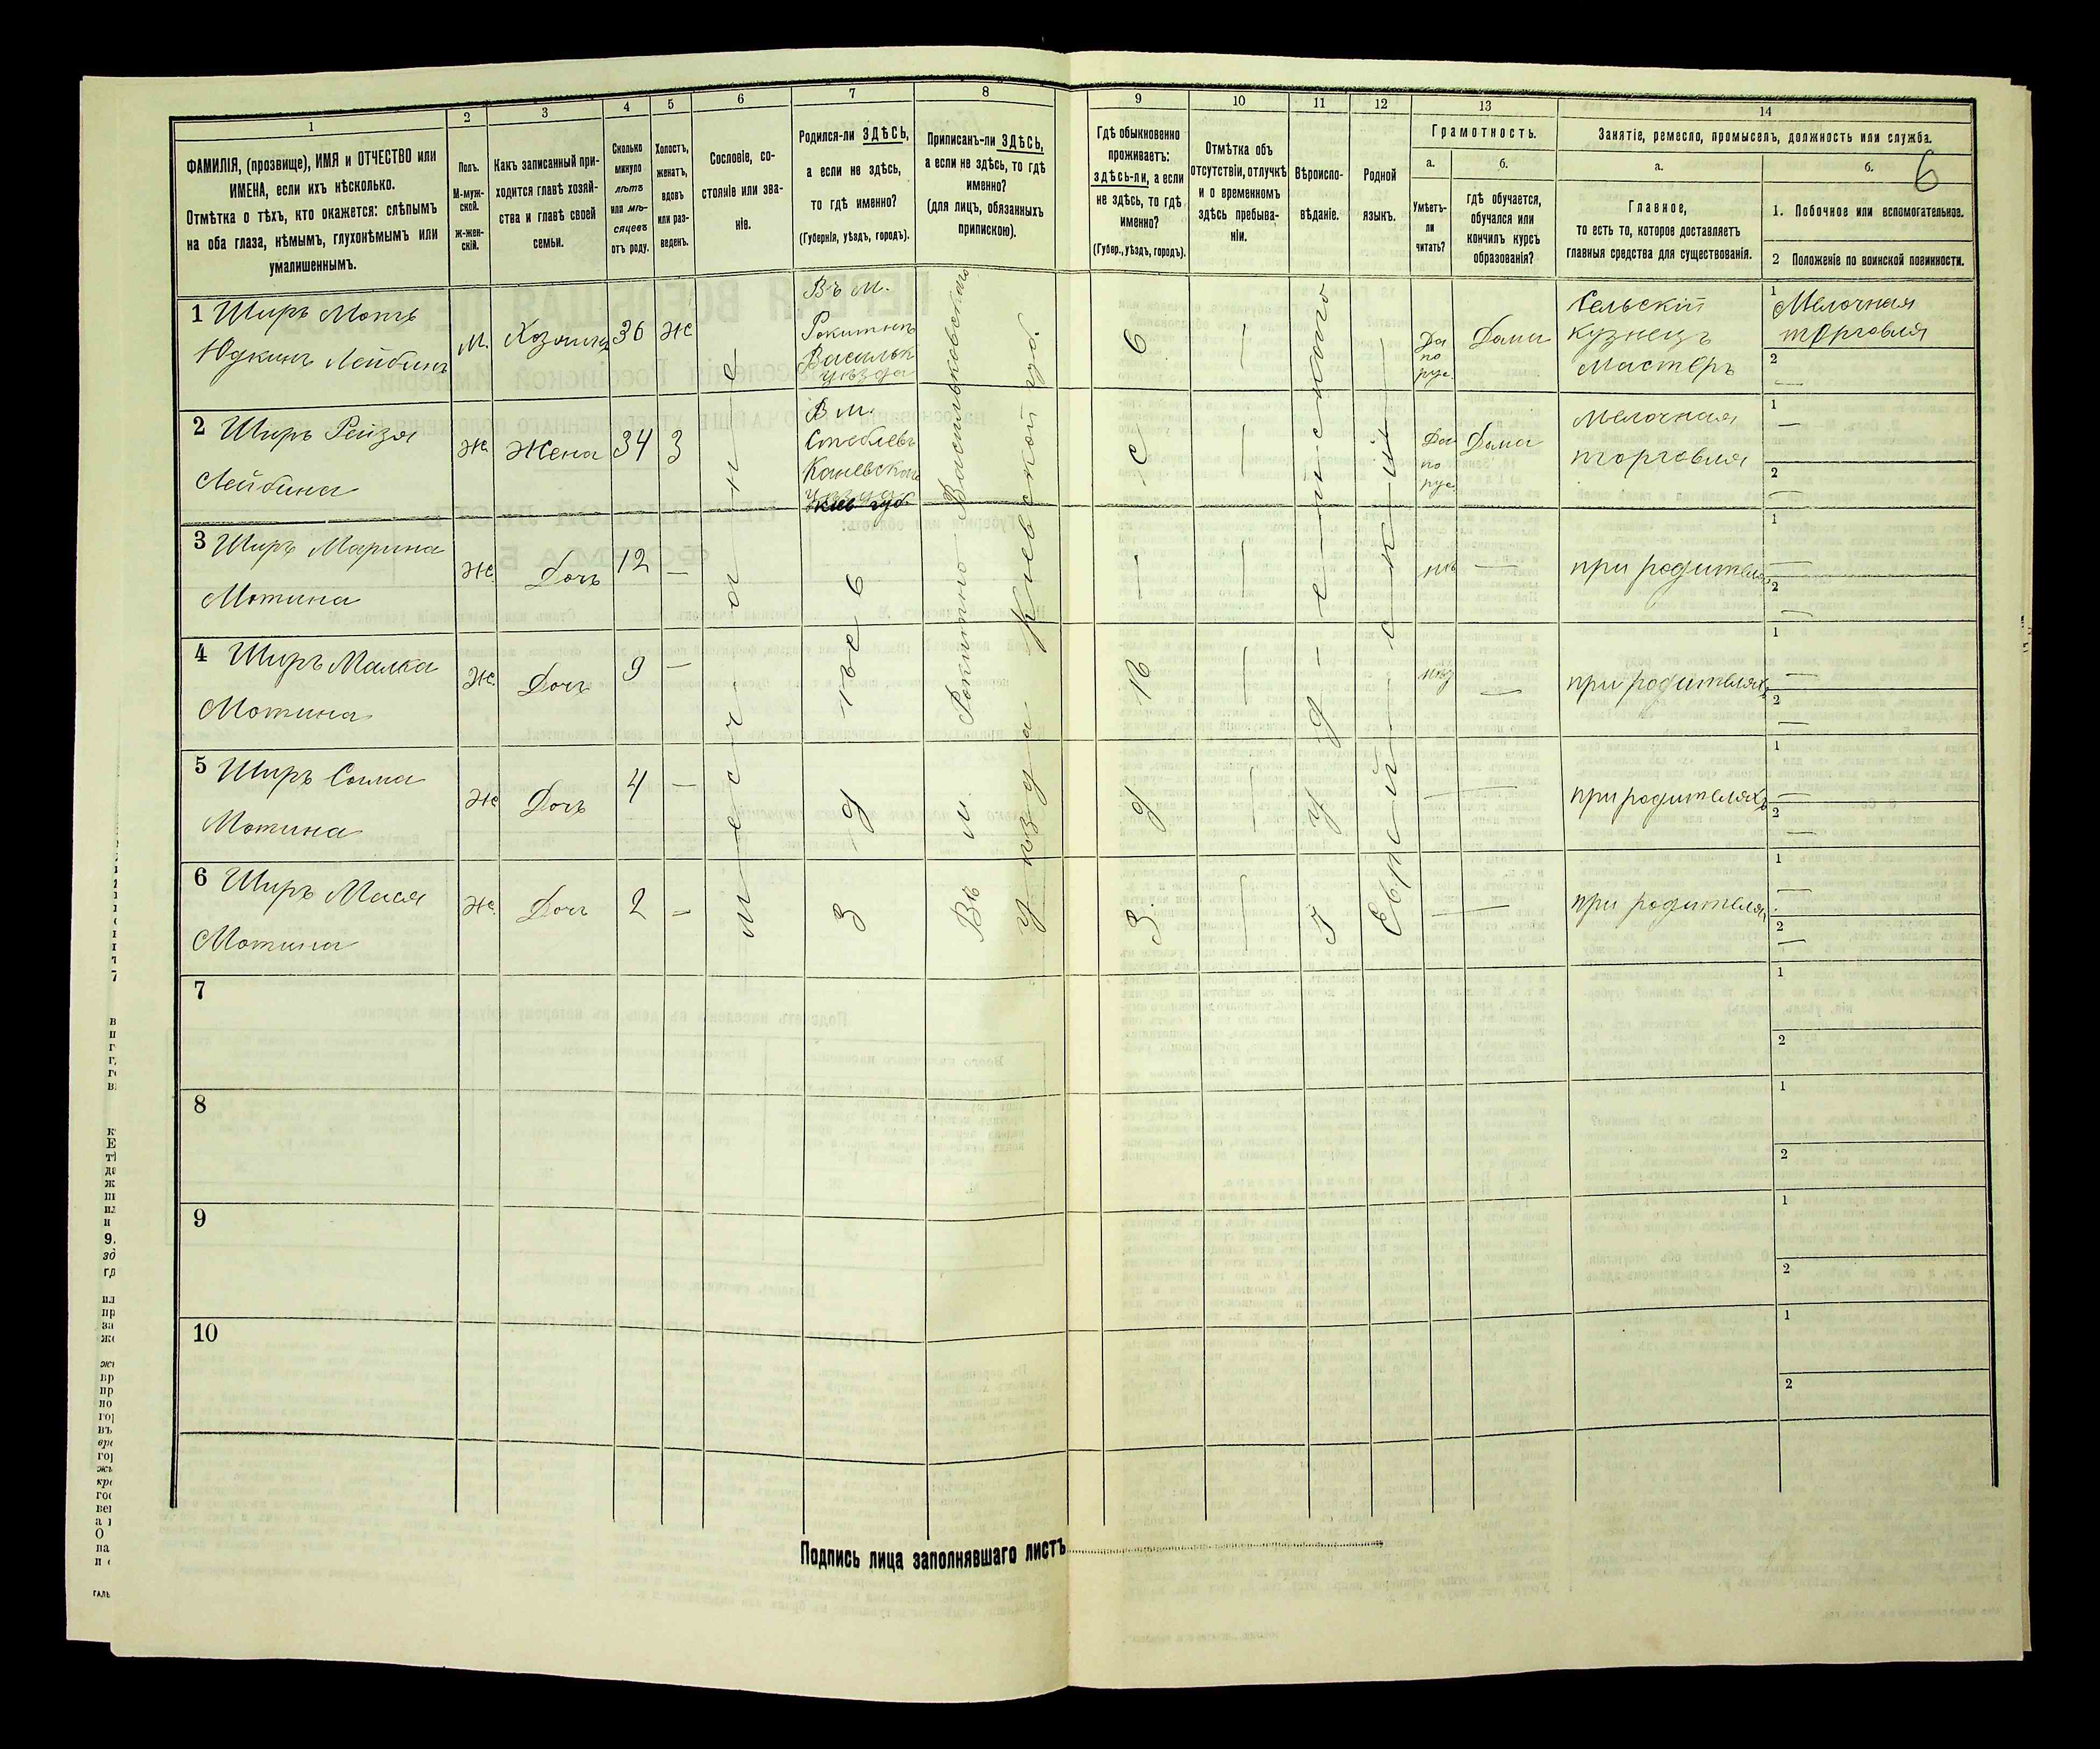 1
2
3
4
5
6
7
8
9
10
11
12
13
14
ФАМИЛІЯ, (прозвище), ИМЯ и ОТЧЕСТВО или
ИМЕНА, если ихъ нѣсколько.
Отмѣтка о тѣхъ, кто окажется: слѣпымъ
на оба глаза, нѣмымъ, глухонѣмымъ или
умалишеннымъ.
Полъ.
М-муж-
ской.
Ж-жен-
скій.
Какъ записанный при-
ходится главѣ хозяй-
ства и главѣ своей
семьи.
Сколько
минуло
лѣтъ
или мѣ-
сяцевъ
отъ роду.
Холостъ,
женатъ,
вдовъ
или раз-
веденъ.
Сословіе, со-
стояніе или зва-
ніе.
Родился-ли ЗДѢСЬ,
а если не здѣсь,
то гдѣ именно?
(Губернія, уѣздъ, городъ).
Приписанъ-ли ЗДѢСЬ,
а если не здѣсь, то гдѣ
именно?
(для лицъ, обязанныхъ
припискою).
Гдѣ обыкновенно
проживаетъ:
здѣсь-ли, а если
не здѣсь, то гдѣ
именно?
(Губер., уѣздъ, городъ).
Отмѣтка объ
отсутствіи, отлучкѣ
и о временномъ
здѣсь пребыва-
ніи.
Вѣроиспо-
вѣданіе.
Родной
языкъ.
Грамотность.
а.
б.
Умѣетъ-
ли
читать?
гдѣ обучается,
обучался или
кончилъ курсъ
образованія?
Занятіе, ремесло, промыселъ, должность или служба.
а.
б.
6
Главное,
то есть то, которое доставляетъ
главныя средства для существованія.
1. Побочное или вспомогательное.
2 Положеніе по воинской повинности.
1 Ширъ Моть
Юдкинъ Лейбинъ
М.
Хозяинъ
36
Же
Въ М.
Рокитнѣ
Васильк
уѣзда
Да
по
рус.
Дома
Сельскій
кузнецъ
Мастеръ
1
Мелочная
торговля
2
2 Ширъ Рейзя
Лейбина
Же
Жена
34
З
В М.
Стеблевъ
Каневскаго
уѣзда
Кіев губ
Да
по
рус.
Дома
Мелочная
торговля
1
2
3 Ширъ Марина
Мотина
Же
Дочь
12
нѣ
при родителяхъ
1
2
4 Ширъ Малка
Мотина
Же.
Дочь
9
при родителяхъ
1
2
5 Ширъ Сима
Мотина
Же
Дочь
4
при родителяхъ
1
2
6 Ширъ Мася
Мотина
Же.
Дочь
2
при родителях
1
2
здѣсь
Въ м. Рокитно Васильковскаго
уѣзда Кіевской губ.
здѣсь
Іудейскаго
Еврейскій
7
1
2
8
1
2
9
1
2
10
1
2
Подпись лица заполнявшаго листъ